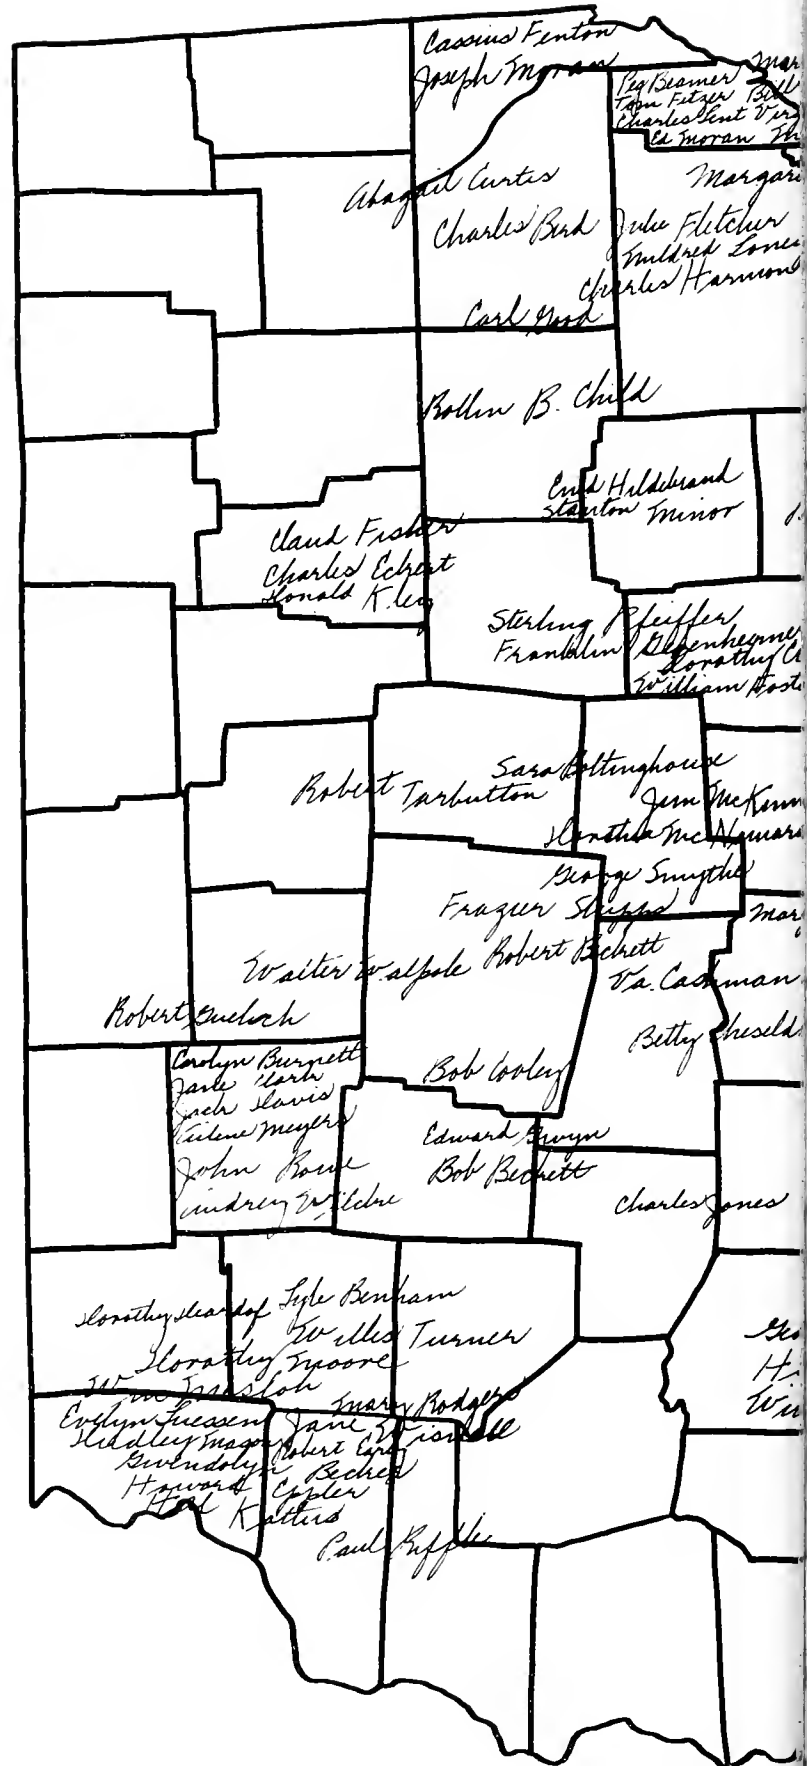 Cassius Fenton
Joseph Moran
Mar
Peg Beamer
Tom Fetzer Bill
Charles Lent Virg
Ed Moran
Abagail Curtis
Margar
Charles Bird
Julie Fletcher
Mildred Lones
Charles Harmon
Carl Good
Rollin B. Child
Enid Hildebrand
Stanton Minor
Claud Fisher
Charles Eckert
Donald Kley
Sterling Pfeiffer
Franklin Gegenheimer
Dorothy C
William Hoste
Sara Boltinghouse
Robert Tarbutton
Jim McKinn
Horotha McNamara
George Smythe
Frazier Shipps
Mar
Robert Beckett
Walter Walpole
Va. Cashman
Robert Gueloch
Betty Cheseld
Carolyn Burnett
Jane Clark
Jack Davis
Eilene Meyers
John Rowe
Audrey Wildre
Bob Cooley
Edward Gwyn
Bob Beckett
Charles Jones
Dorothy Deardof
Lyle Benham
Willis Turner
Dorothy Moore
Wm Mesloh
Geo
H
Wil
Mary Rodgers
Evelyn Luessen
Jane Wisnell
Hadley Mason
Robert Early
Gwendolyn Becker
Howard Eppler
Hal Katters
Paul Riffle